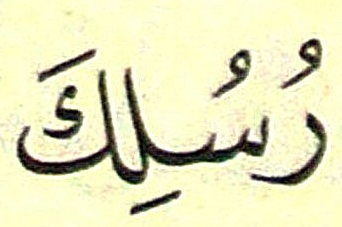 رُسُلِكَ